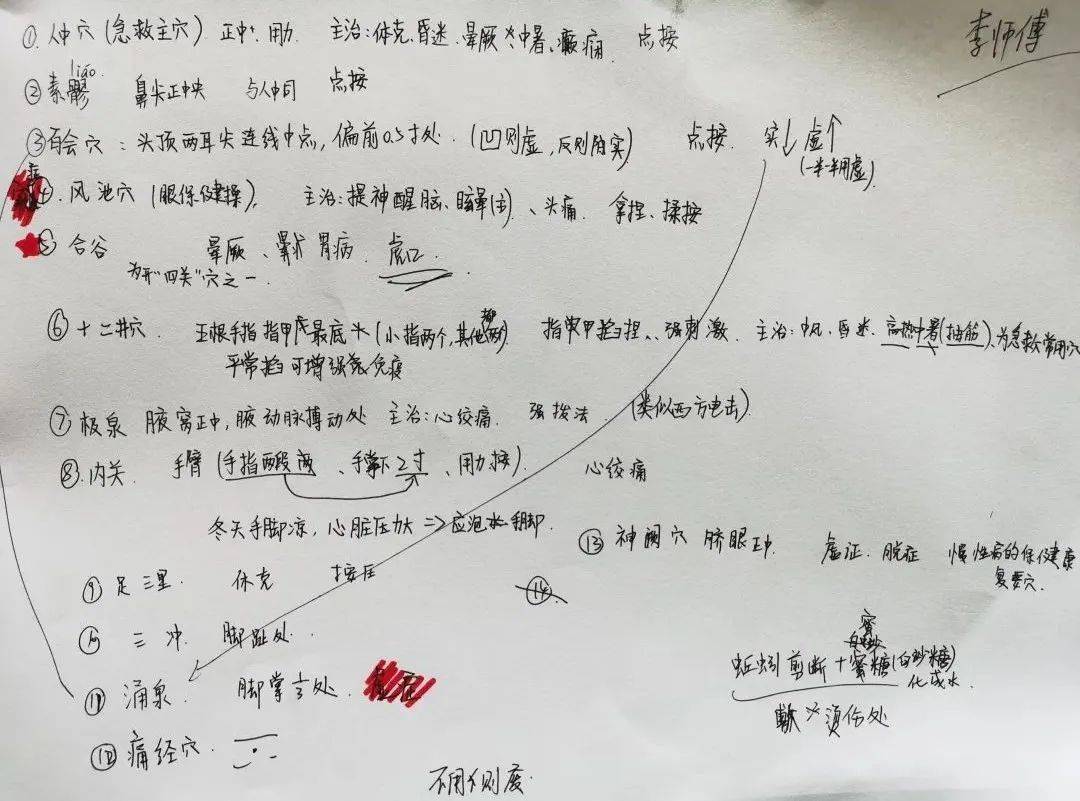 李师傅
①.人中穴(急救主穴) 正中.用力. 主治:休克.昏迷.晕厥.中暑.癫痫. 点按
liáo
②素髎 鼻尖正中央 与人中同 点按
③百会穴:头顶两耳尖连线中点,偏前0.5寸处.(凹则虚,反则为实) 点按. 实↓虚↑
(一半一半用虚).
④.风池穴(眼保健操). 主治:提神醒脑、眩晕(主)、头痛. 拿捏、揉按
⑤合谷 晕厥、晕 胃病. 虎口.
为开"四关"穴之一.
⑥十二井穴. 五根手指指甲 最底 (小指两个,其他) 指甲掐捏、强刺激. 主治:中风、昏迷.高热中暑(抽筋).为急救常用穴
平常掐可增强免疫
⑦极泉 腋窝正中,腋动脉搏动处 主治:心绞痛. 强拨法. (类似西方电击).
⑧.内关. 手臂(手指两段 、手掌下2寸、用力按). 心绞痛
冬天手脚凉,心脏压力大=>应泡手脚.
⑬神阙穴 脐眼正中. 虚证.脱症 慢性病的保健康
复要穴.
⑨足三里. 休克 按压
⑭
⑩三冲. 脚趾处.
⑪涌泉. 脚掌⅓处.
⑫痛经穴.
蜜
蚯蚓剪断+蜜糖(白砂糖)
化成水
烫伤处
不用则废.